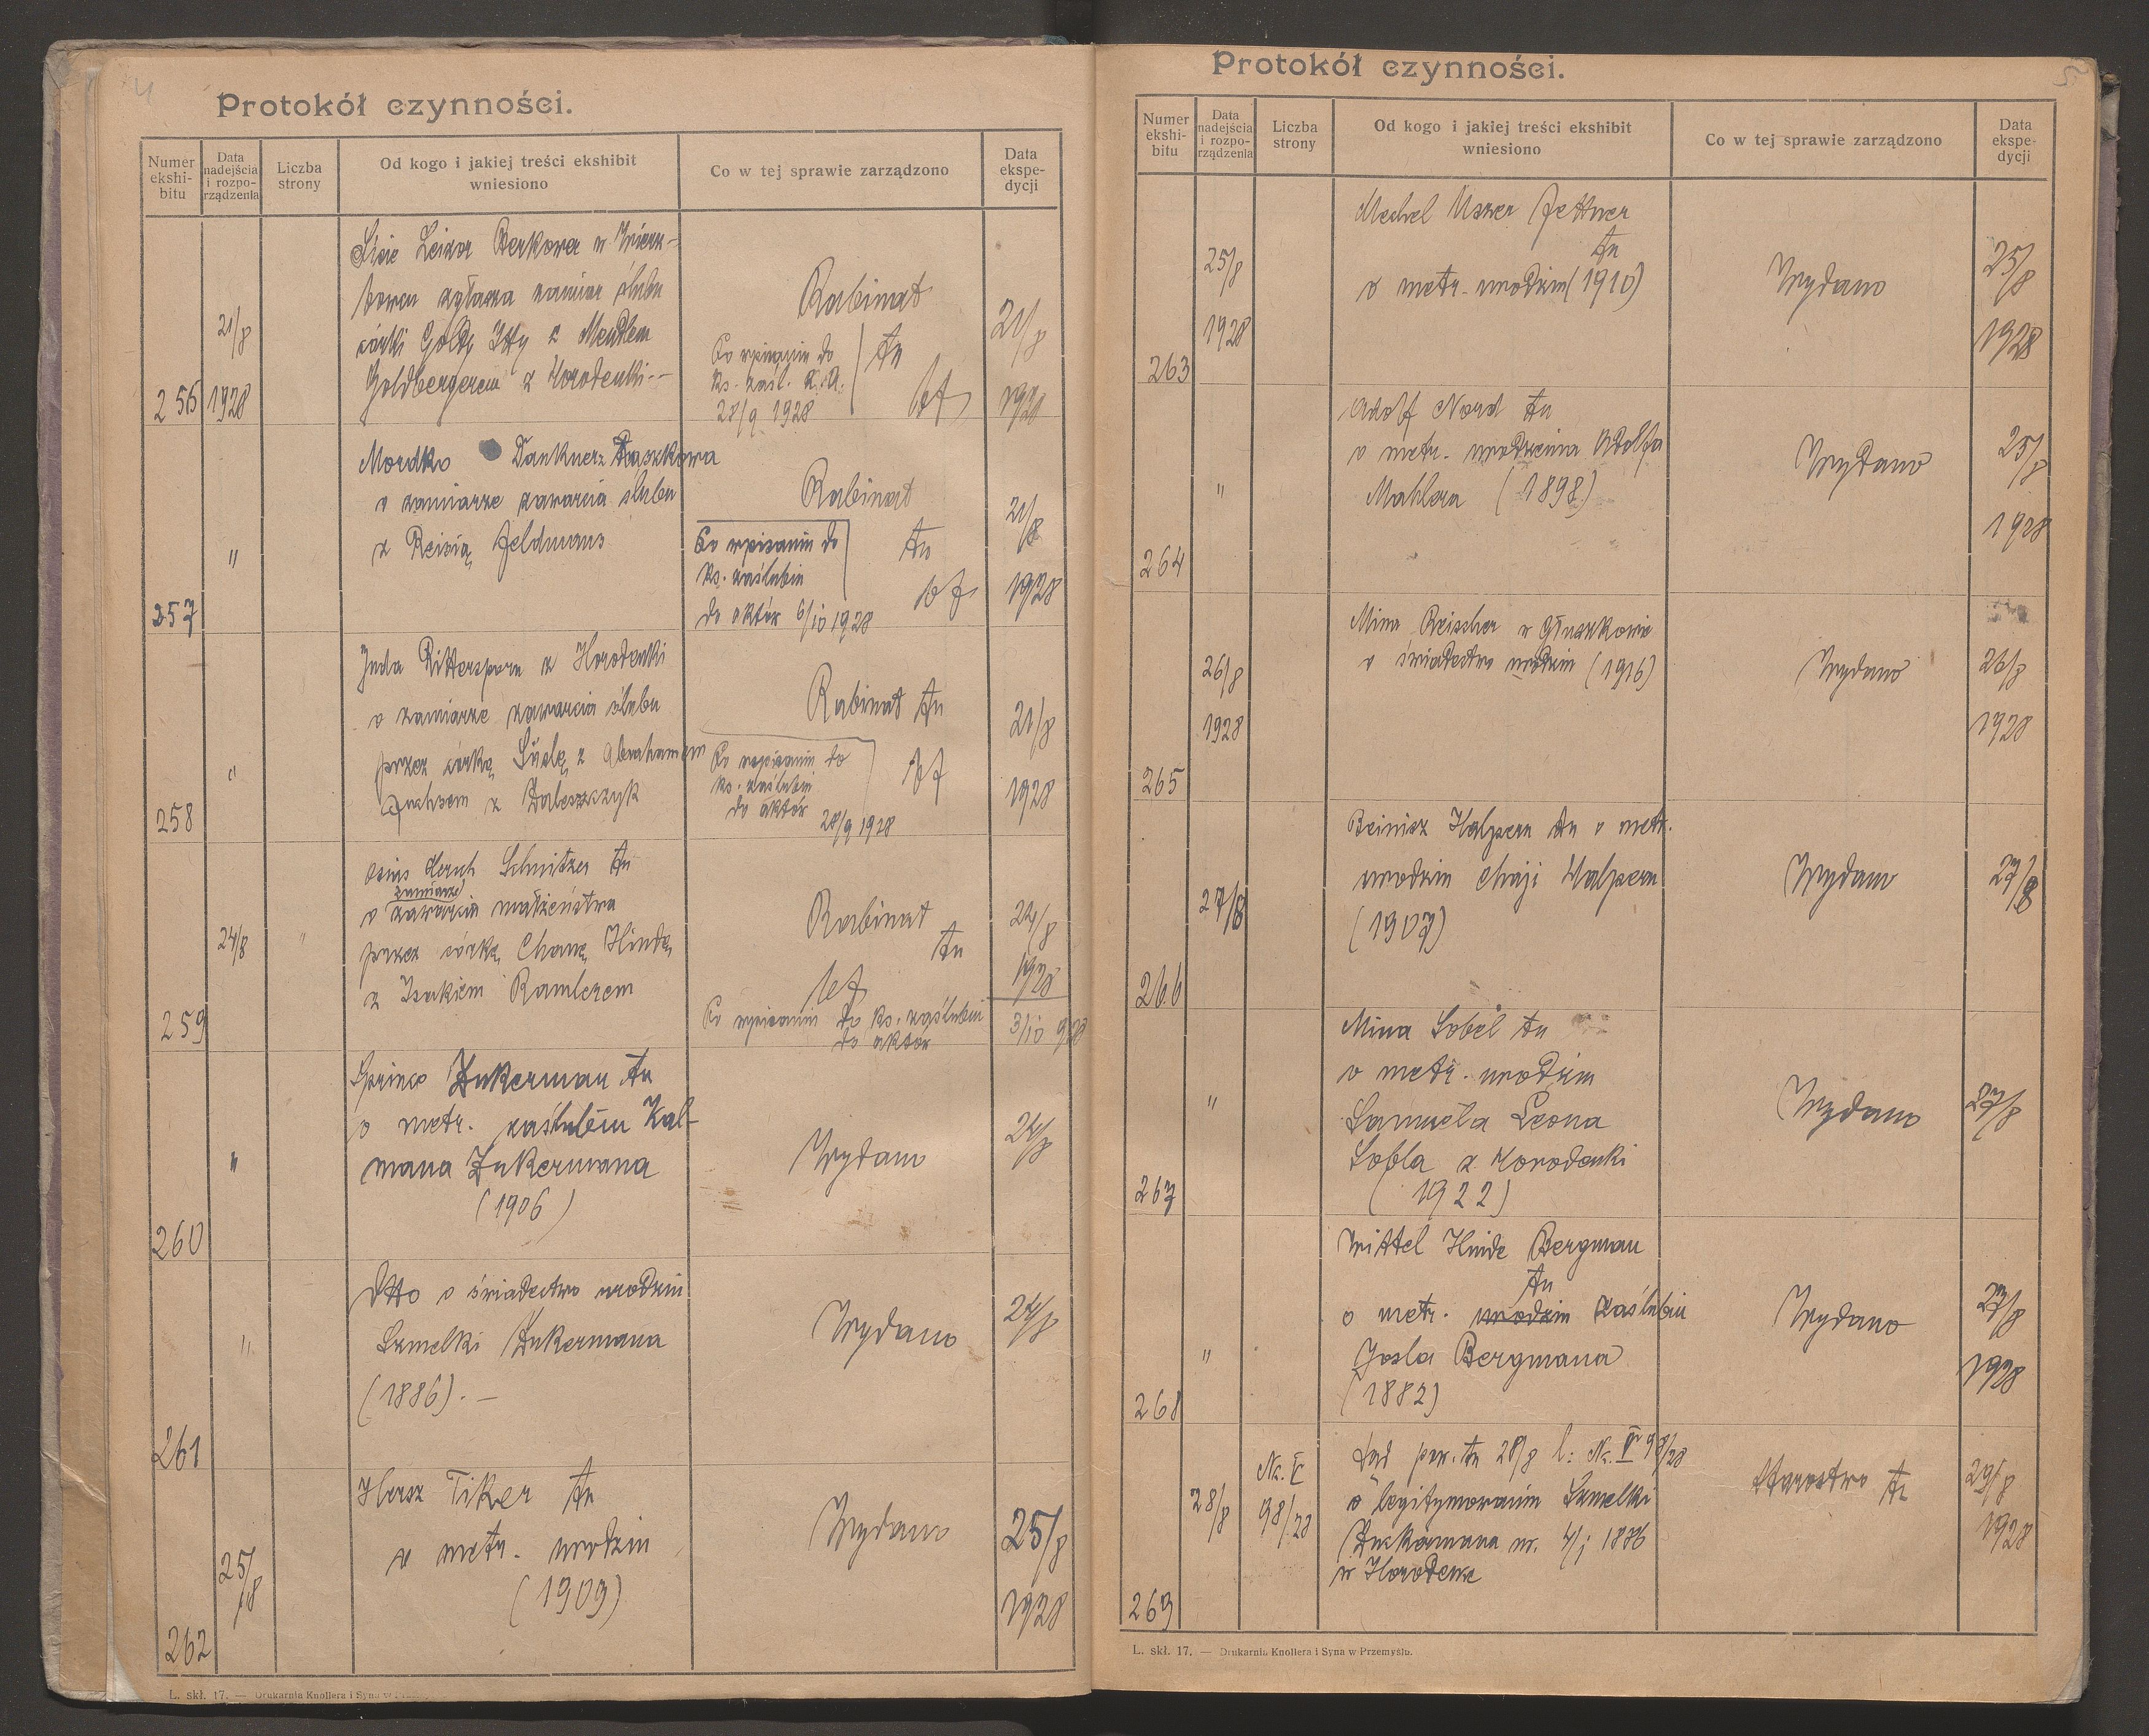 4
Protokół czynności.
Numer ekshi-bitu
Data nadejścia i rozpo-rządzenia
Liczba strony
Od kogo i jakiej treści ekshibit wniesiono
Co w tej sprawie zarządzono
Data ekspe-dycji
256
21/8
1928
Leizor Berkower w
zgłasza zamiar ślubu
córki Goldy Itty z Mendlem
Goldbergerem z Horodenki -
Rabinat
tu
Po wpisaniu do
ks. zaśl. a.a.
28/9 1928
21/8
1928
257
"
Mordko Dankner z Daszkowa
o zamiarze zawarcia ślubu
z Reisią Feldmaus
Rabinat
tu
Po wpisaniu do
ks. zaślubin
do aktów 6/10 1928
21/8
1928
258
"
Juda Rittersporn z Horodenki
o zamiarze zawarcia ślubu
przez córkę z Abrahamem
z Zaleszczyk
Rabinat tu
Po wpisaniu do
ks. zaślubin
do aktów
28/9 1928
21/8
1928
259
24/8
Osias Hersch Schnitzer tu
zamiarze
o zawarcia małżeństwa
przez córkę Chanę Hindę
z Isakiem Ramlerem
Rabinat
tu
Po wpisaniu do ks. zaślubin
do aktów
24/8
1928
3/10 928
260
"
Sprince Zukerman tu
o metr. zaślubin Kal-
mana Zukermana
(1906)
Wydano
24/8
261
"
Dtto o świadectwo urodzin
Szmelki Zukermana
(1886). -
Wydano
24/8
262
25/8
Hersz Tiker tu
o metr. urodzin
(1909)
Wydano
25/8
1928
L. skł. 17. — Drukarnia Knollera i Syna w
5
Protokół czynności.
Numer ekshi-bitu
Data nadejścia i rozpo-rządzenia
Liczba strony
Od kogo i jakiej treści ekshibit wniesiono
Co w tej sprawie zarządzono
Data ekspe-dycji
263
25/8
1928
Mechel Uszer Fettner
tu
o metr. urodzin (1910)
Wydano
25/8
1928
264
"
Adolf Nord tu
o metr. urodzenia Adolfa
Mahlera (1898)
Wydano
25/8
1928
265
26/8
1928
Mina Reischer w Głuszkowie
o świadectwo urodzin (1916)
Wydano
26/8
1928
266
27/8
Beinisz Halpern tu o metr.
urodzin Chaji Halpern
(1907)
Wydano
27/8
267
"
Mina Sobel tu
o metr. urodzin
Samuela Leona
Sobla z Horodenki
(1922)
Wydano
27/8
268
"
Mittel Hinde Bergman
tu
o metr. urodzin zaślubin
Josla Bergmana
(1882)
Wydano
27/8
1928
269
28/8
Nc. V
98/28
Sąd pow. tu 28/8 l: Nc. V 98/28
o legitymowaniu Szmelki
Zukermana ur. 4/1 1886
w Horodence
Starostwo tu
29/8
1928
L. skł. 17. — Drukarnia Knollera i Syna w Przemyślu.